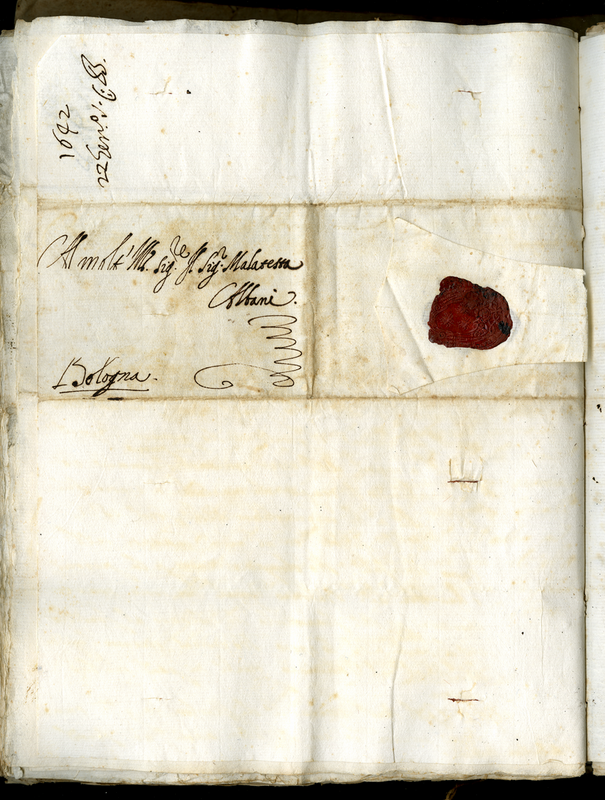 1642
22 Genaro
Al molt' Ill. Sig.re Il Sig.r Malatesta
Albani.
Bologna.